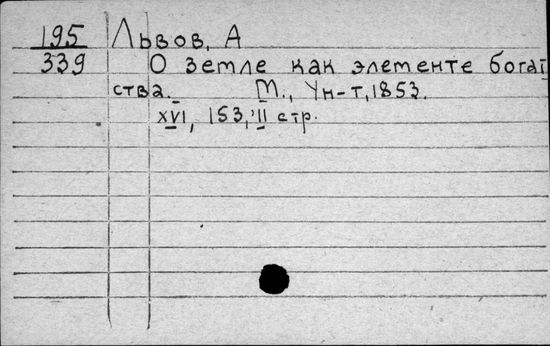 195 Львов, А
339 О земле как элементе богат
ства. М., Ун-т, 1853.
XVI, 153, II стр.